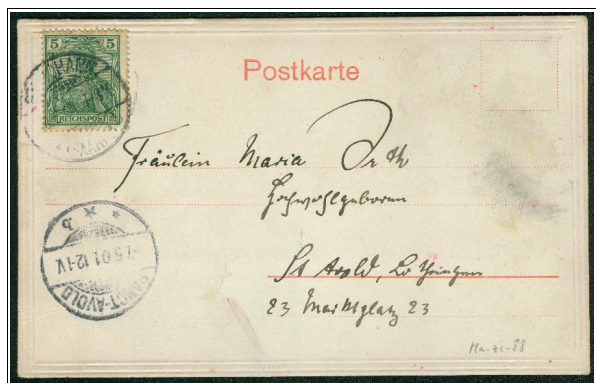 5 5
HANN
REICHSPOST
Postkarte
Fräulein Maria Orth
Hochwohlgeboren
St Avold, Lothringen
23 Marktplatz 23
SANCT-AVOLD
7.5.01.12-1V.
* * b
Ha-zc-88